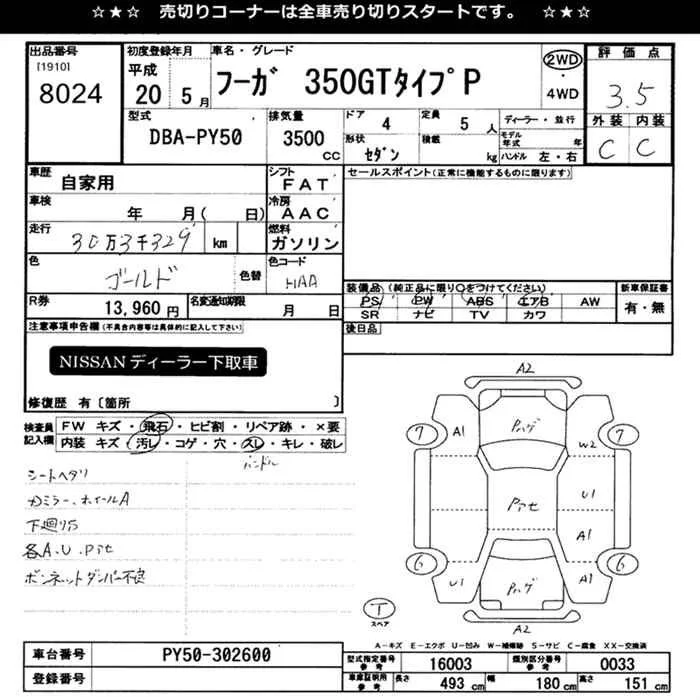 ☆★☆ 売切りコーナーは全車売り切りスタートです。 ☆★☆
出品番号 初度登録年月 車名・グレード 評価点
[1910] 8024 平成 20 5月 フーガ 350GTタイプP 2WD・4WD 3.5
型式 排気量 ドア 4 定員 5人 ディーラー・並行 外装 内装
DBA-PY50 3500cc 形状 セダン 積載 kg モデル年式 年 C C
ハンドル 左・右
車歴 自家用 シフト FAT セールスポイント(正常に機能するものに限ります)
車検 年 月( 日) 冷房 AAC
走行 30万3千329 km 燃料 ガソリン
色 ゴールド 色替 色コード HAA
装備品(純正品に限り○をつけてください) 新車保証書
PS PW ABS エアB AW 有・無
SR ナビ TV カワ
R券 13,960円 名変通知期限 月 日
後日品
注意事項申告欄(不具合内容等は具体的に記入して下さい)
NISSANディーラー下取車
修復歴 有〔箇所 〕
検査員記入欄 FW キズ・飛石・ヒビ割・リペア跡・×要
内装 キズ・汚レ・コゲ・穴・スレ・キレ・破レ
ハンドル
シートヘタリ
カミラー、ホイールA
下廻りS
各A.U.Pアセ
ボンネットダンパー不良
A2
7 A1 Pハゲ W2 7
Pアセ U1
A1
6 U1 Pハゲ A1 6
T スペア
A2
A-キズ E-エクボ U-凹み W-補修跡 S-サビ C-腐食 XX-交換済
車台番号 PY50-302600 型式指定番号 参考 16003 類別区分番号 参考 0033
登録番号 車庫証明用 参考 長さ 493cm 幅 180cm 高さ 151cm